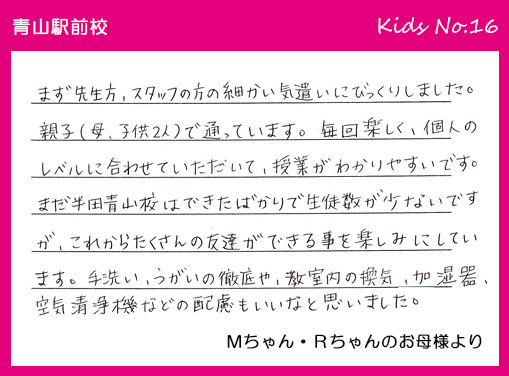 青山駅前校
Kids No.16
まず先生方、スタッフの方の細かい気遣いにびっくりしました。
親子(母、子供2人)で通っています。毎回楽しく、個人の
レベルに合わせていただいて、授業がわかりやすいです。
まだ半田青山校はできたばかりで生徒数が少ないです
が、これからたくさんの友達ができる事を楽しみにしてい
ます。手洗い、うがいの徹底や、教室内の換気、加湿器、
空気清浄機などの配慮もいいなと思いました。
Mちゃん・Rちゃんのお母様より